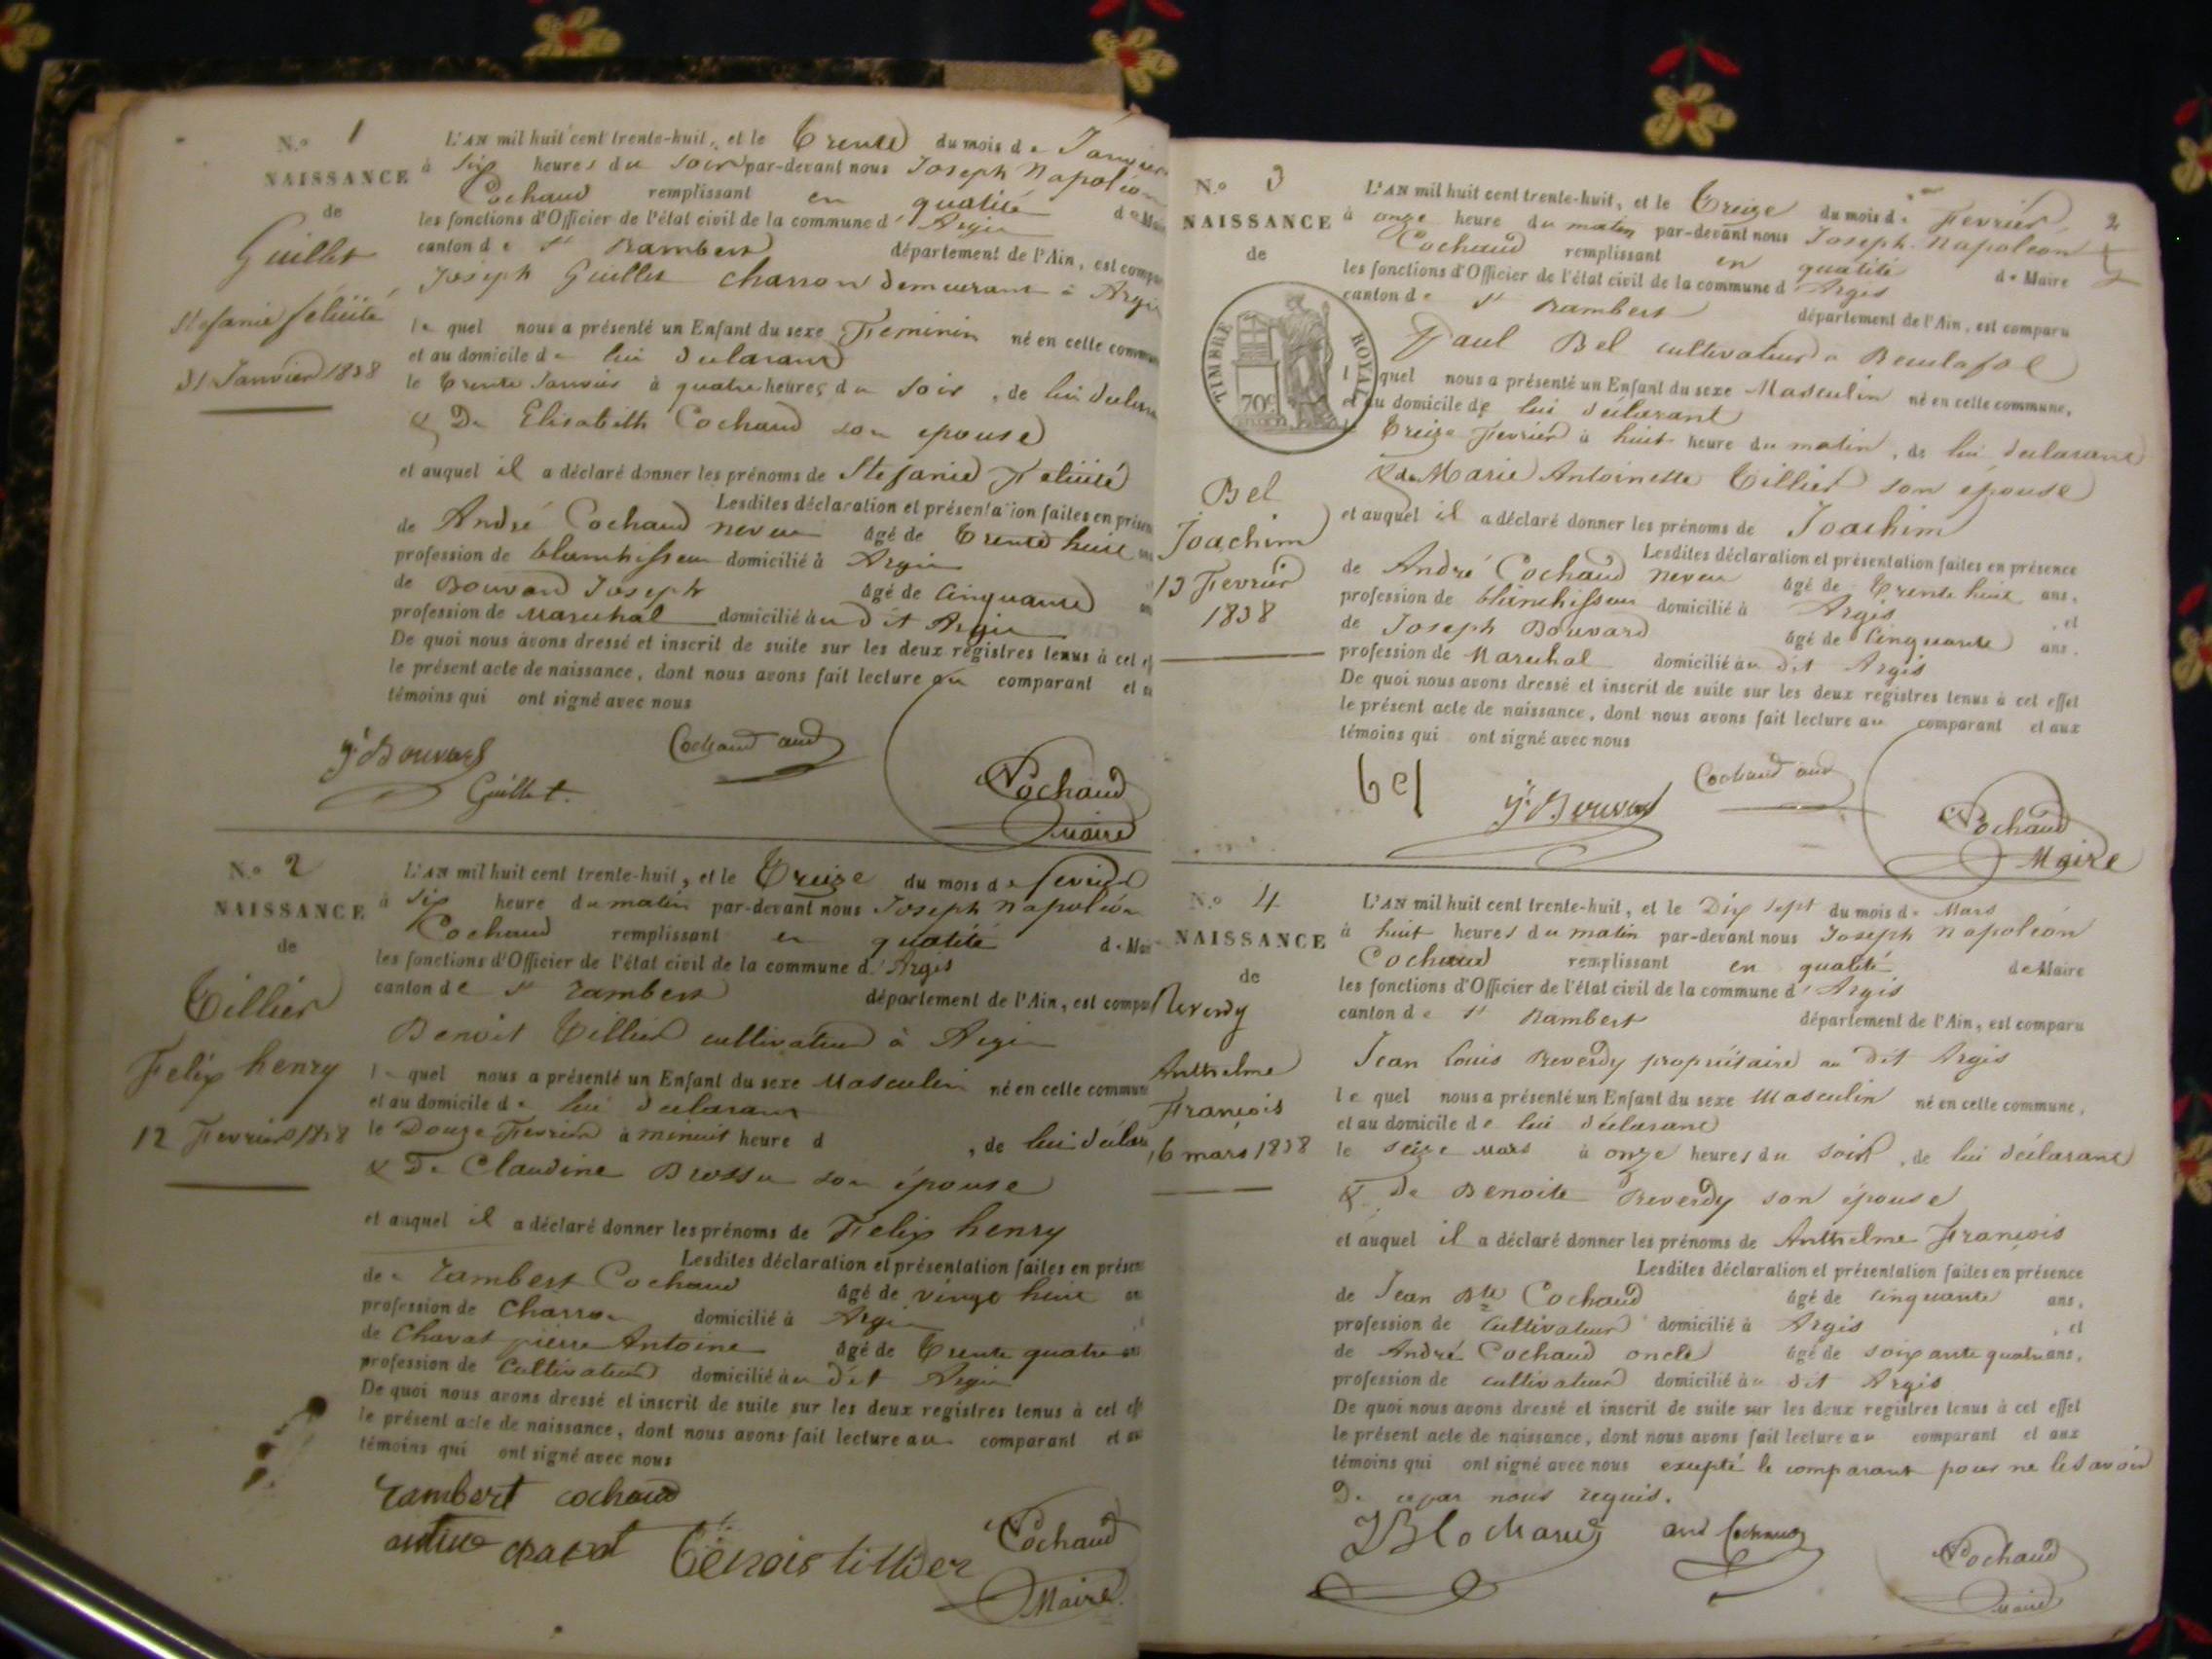 N.o 1
NAISSANCE
de
Guillet
Stefanie félicité
31 Janvier 1838
L'AN mil huit cent trente-huit, et le Trente du mois de Janvier
à Six heures du soir par-devant nous Joseph Napoléon
Cochaud remplissant en qualité de Mai
les fonctions d'Officier de l'état civil de la commune d' Argis
canton de St Rambert département de l'Ain, est compa
Joseph Guillet charron demeurant à Argis
le quel nous a présenté un Enfant du sexe Feminin né en cette commun
et au domicile de lui déclarant
le trente Janvier à quatre heures du soir, de lui declara
& De Elisabeth Cochaud son epouse
et auquel il a déclaré donner les prénoms de Stefanie Félicité
Lesdites déclaration et présentation faites en présen
de André Cochaud neveu âgé de trente huit ans
profession de blanchisseur domicilié à Argis
de Bouvard Joseph âgé de Cinquante an
profession de Marechal domicilié au dit Argis
De quoi nous avons dressé et inscrit de suite sur les deux registres tenus à cet ef
le présent acte de naissance, dont nous avons fait lecture au comparant et a
témoins qui ont signé avec nous
Jh Bouvard Cochaud and
Guillet.
NCochaud
maire
N.o 2
NAISSANCE
de
Tillier
Felix henry
12 Fevrier 1838
L'AN mil huit cent trente-huit, et le Treize du mois de fevrier
à Six heure du matin par-devant nous Joseph Napoléon
Cochaud remplissant en qualité de Mai
les fonctions d'Officier de l'état civil de la commune d' Argis
canton de St rambert département de l'Ain, est compa
Benoit Tillier cultivateur à Argis
le quel nous a présenté un Enfant du sexe Masculin né en cette commun
et au domicile de lui declarant
le Douze Fevrier à minuit heure d , de lui déclar
& De Claudine Brossu son épouse
et auquel il a déclaré donner les prénoms de Felix henry
Lesdites déclaration et présentation faites en présen
de rambert Cochaud âgé de vingt huit an
profession de Charron domicilié à Argis
de Chavat pierre Antoine âgé de trente quatre an
profession de Cultivateur domicilié au dit Argis
De quoi nous avons dressé et inscrit de suite sur les deux registres tenus à cet eff
le présent acte de naissance, dont nous avons fait lecture au comparant et au
témoins qui ont signé avec nous
rambert cochaud
NCochaud
Maire
benois tillier
N.o 3
NAISSANCE
de
TIMBRE ROYAL
70c
Bel
Joachim
13 Fevrier
1838
2
L'AN mil huit cent trente-huit, et le Treize du mois de Fevrier
à onze heure du matin par-devant nous Joseph Napoléon
Cochaud remplissant en qualité de Maire
les fonctions d'Officier de l'état civil de la commune d' Argis
canton de St Rambert département de l'Ain, est comparu
Paul Bel cultivateur a Reculafol
l quel nous a présenté un Enfant du sexe Masculin né en cette commune,
et au domicile de lui déclarant
Treize Fevrier à huit heure du matin, de lui declarant
& de Marie Antoinette Tillier son épouse
et auquel il a déclaré donner les prénoms de Joachim
Lesdites déclaration et présentation faites en présence
de André Cochaud neveu âgé de trente huit ans,
profession de blanchisseur domicilié à Argis , et
de Joseph Bouvard âgé de Cinquante ans.
profession de Marechal domicilié au dit Argis
De quoi nous avons dressé et inscrit de suite sur les deux registres tenus à cet effet
le présent acte de naissance, dont nous avons fait lecture au comparant et aux
témoins qui ont signé avec nous
bel Jh Bouvard Cochaud and
NCochaud
Maire
N.o 4
NAISSANCE
de
Reverdy
Anthelme
François
16 mars 1838
L'AN mil huit cent trente-huit, et le Dix sept du mois de Mars
à huit heures du matin par-devant nous Joseph Napoléon
Cochaud remplissant en qualité de Maire
les fonctions d'Officier de l'état civil de la commune d' Argis
canton de St Rambert département de l'Ain, est comparu
Jean Louis Reverdy propriétaire au dit Argis
le quel nous a présenté un Enfant du sexe Masculin né en cette commune,
et au domicile de lui déclarant
le seize mars à onze heures du soir, de lui déclarant
& De Benoite Reverdy son épouse
et auquel il a déclaré donner les prénoms de Anthelme François
Lesdites déclaration et présentation faites en présence
de Jean Bte Cochaud âgé de cinquante ans,
profession de Cultivateur domicilié à Argis , et
de André Cochaud oncle âgé de soixante quatre ans,
profession de cultivateur domicilié au dit Argis
De quoi nous avons dressé et inscrit de suite sur les deux registres tenus à cet effet
le présent acte de naissance, dont nous avons fait lecture au comparant et aux
témoins qui ont signé avec nous excepté le comparant pour ne le savoir
De ce par nous requis.
JB Cochaud and Cochaud
NCochaud
maire